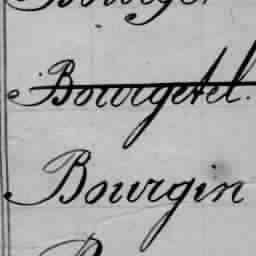 Bourgetel.
Bourgin